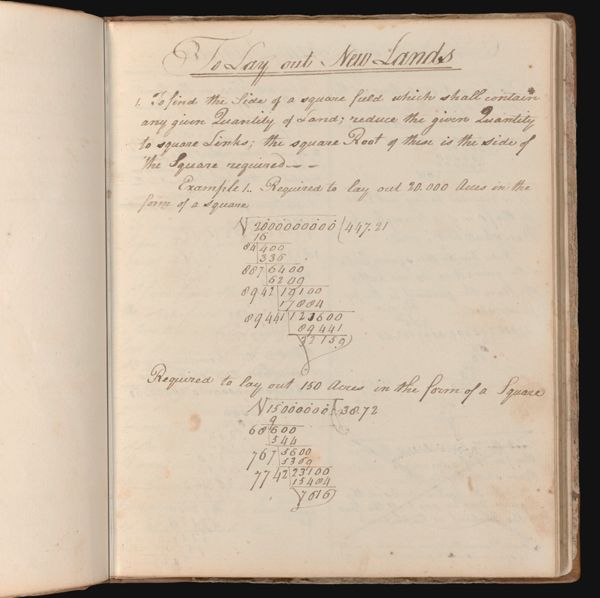 To Lay out New Lands
1. To find the Side of a square field which shall contain
any given Quantity of Land; reduce the given Quantity
to square Links; the square Root of these is the side of
the Square required - -
Example 1.. Required to lay out 20.000 Acres in the
form of a square
√2000000000(447.21
16
84|400
336
887|6400
6209
8942|19100
17884
89441|121600
89441
32159
Required to lay out 150 Acres in the form of a Square
√15000000(3872
9
68|600
544
767|5600
5369
7742|23100
15484
7616